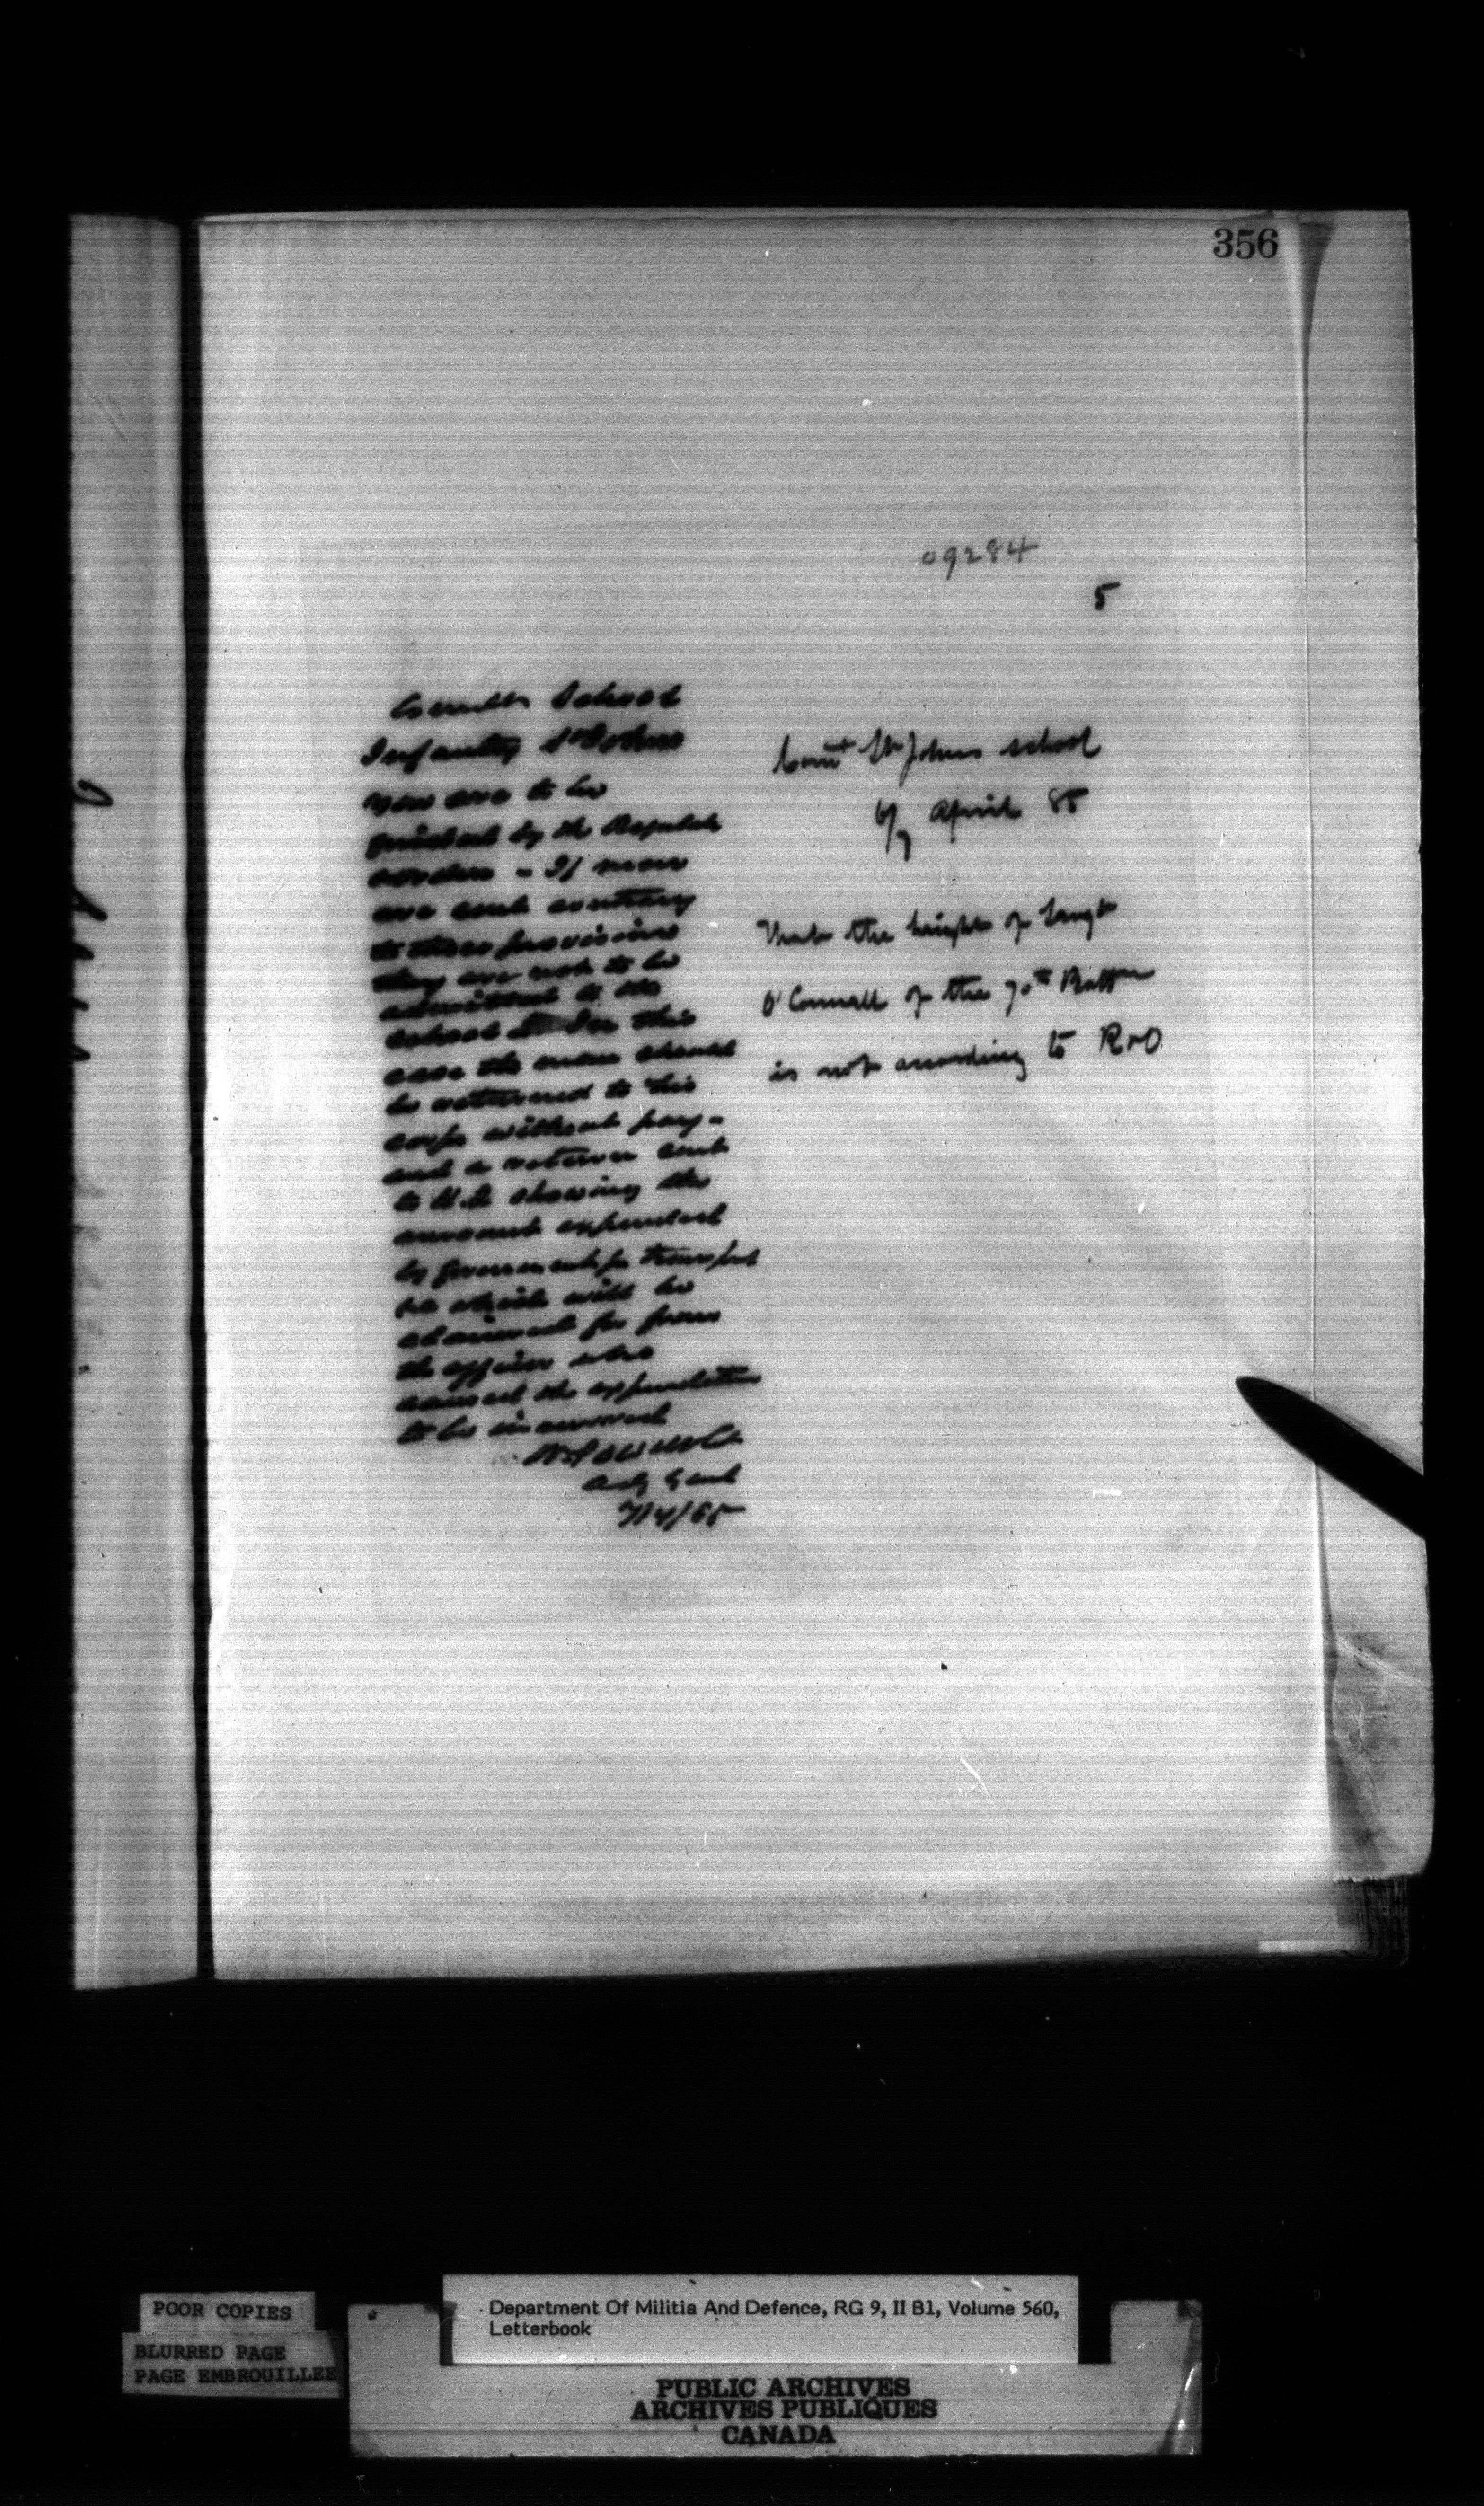 356
09284
5
Comdt School
Infantry St Johns
You are to be
guided by the Regulats
& orders - If men
are sent contrary
to these provisions
they are not to be
admitted to the
school In this
case the man should
be returned to his
corps without pay -
and a return sent
to H.Q. showing the
amount expended
by government for transport
which will be
claimed for from
the officer who
caused the expenditure
to be incurred
W Powell Col
Adj Genl
7/4/85
Comt St Johns school
6/7 April 85
That the height of Sergt
O'Connell of the 70th Battn
is not according to R&O
POOR COPIES
BLURRED PAGE
PAGE EMBROUILLEE
Department Of Militia And Defence, RG 9, II B1, Volume 560,
Letterbook
PUBLIC ARCHIVES
ARCHIVES PUBLIQUES
CANADA